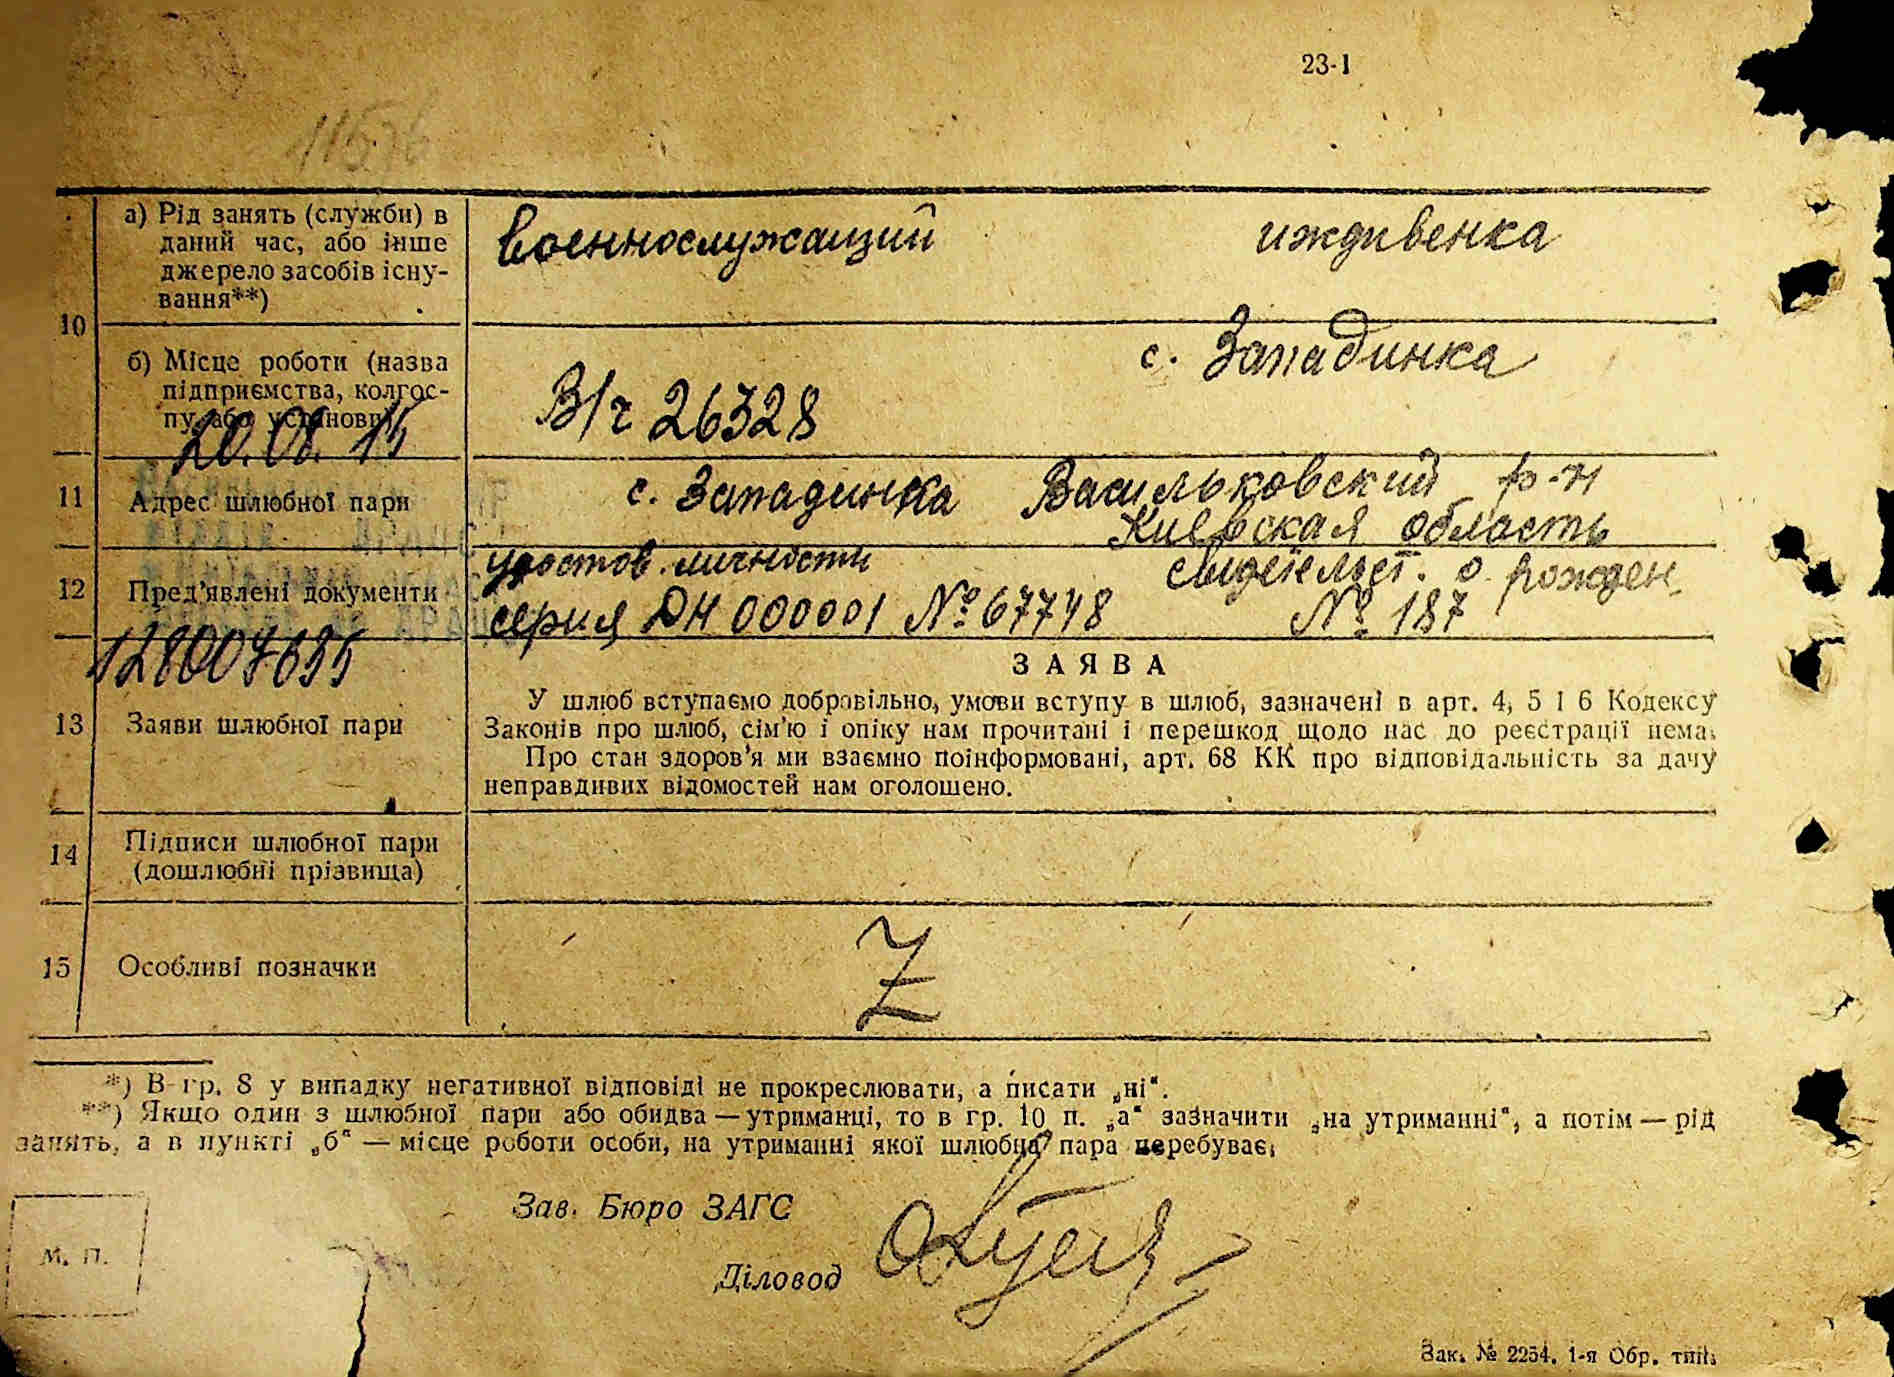 23-1
11576
10
а) Рід занять (служби) в
даний час, або інше
джерело засобів існу-
вання**)
военнослужащий иждивенка
б) Місце роботи (назва
підприємства, колгос-
пу або установи)
с. Западинка
В/ч 26328
20.08.15
11 Адрес шлюбної пари
с. Западинка Васильковский р-н
Киевская область
12 Пред'явлені документи
удостов. личности свидетельст. о рожден.
серия ДН 000001 № 67748 № 187
128007695
13 Заяви шлюбної пари
ЗАЯВА
У шлюб вступаємо добровільно, умови вступу в шлюб, зазначені в арт. 4, 5 і 6 Кодексу
Законів про шлюб, сім'ю і опіку нам прочитані і перешкод щодо нас до реєстрації нема.
Про стан здоров'я ми взаємно поінформовані, арт. 68 КК про відповідальність за дачу
неправдивих відомостей нам оголошено.
14 Підписи шлюбної пари
(дошлюбні прізвища)
15 Особливі позначки
Z
*) В гр. 8 у випадку негативної відповіді не прокреслювати, а писати „ні“.
**) Якщо один з шлюбної пари або обидва — утриманці, то в гр. 10 п. „а“ зазначити „на утриманні“, а потім — рід
занять, а в пункті „б“ — місце роботи особи, на утриманні якої шлюбна пара перебуває.
Зав. Бюро ЗАГС
Діловод
М. П.
Зак. № 2254. 1-я Обр. тип.